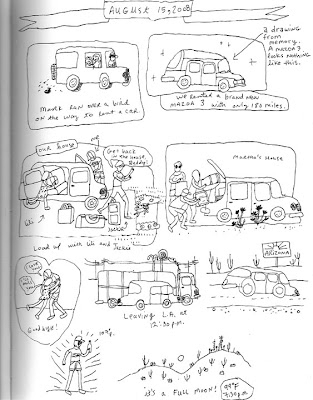 AUGUST 15, 2008
a drawing
from
memory.
A MAZDA 3
looks nothing
like this.
Mark ran over a bird
on the way to rent a car.
We rented a brand new
MAZDA 3 with only 180 miles.
our house
me
Get back
in the house,
Martha's House
Load up with
Leaving L.A. at
12:30 p.m.
ARIZONA
Goodbye!
109°F.
it's a Full Moon!
99°F
7:30 p.m.